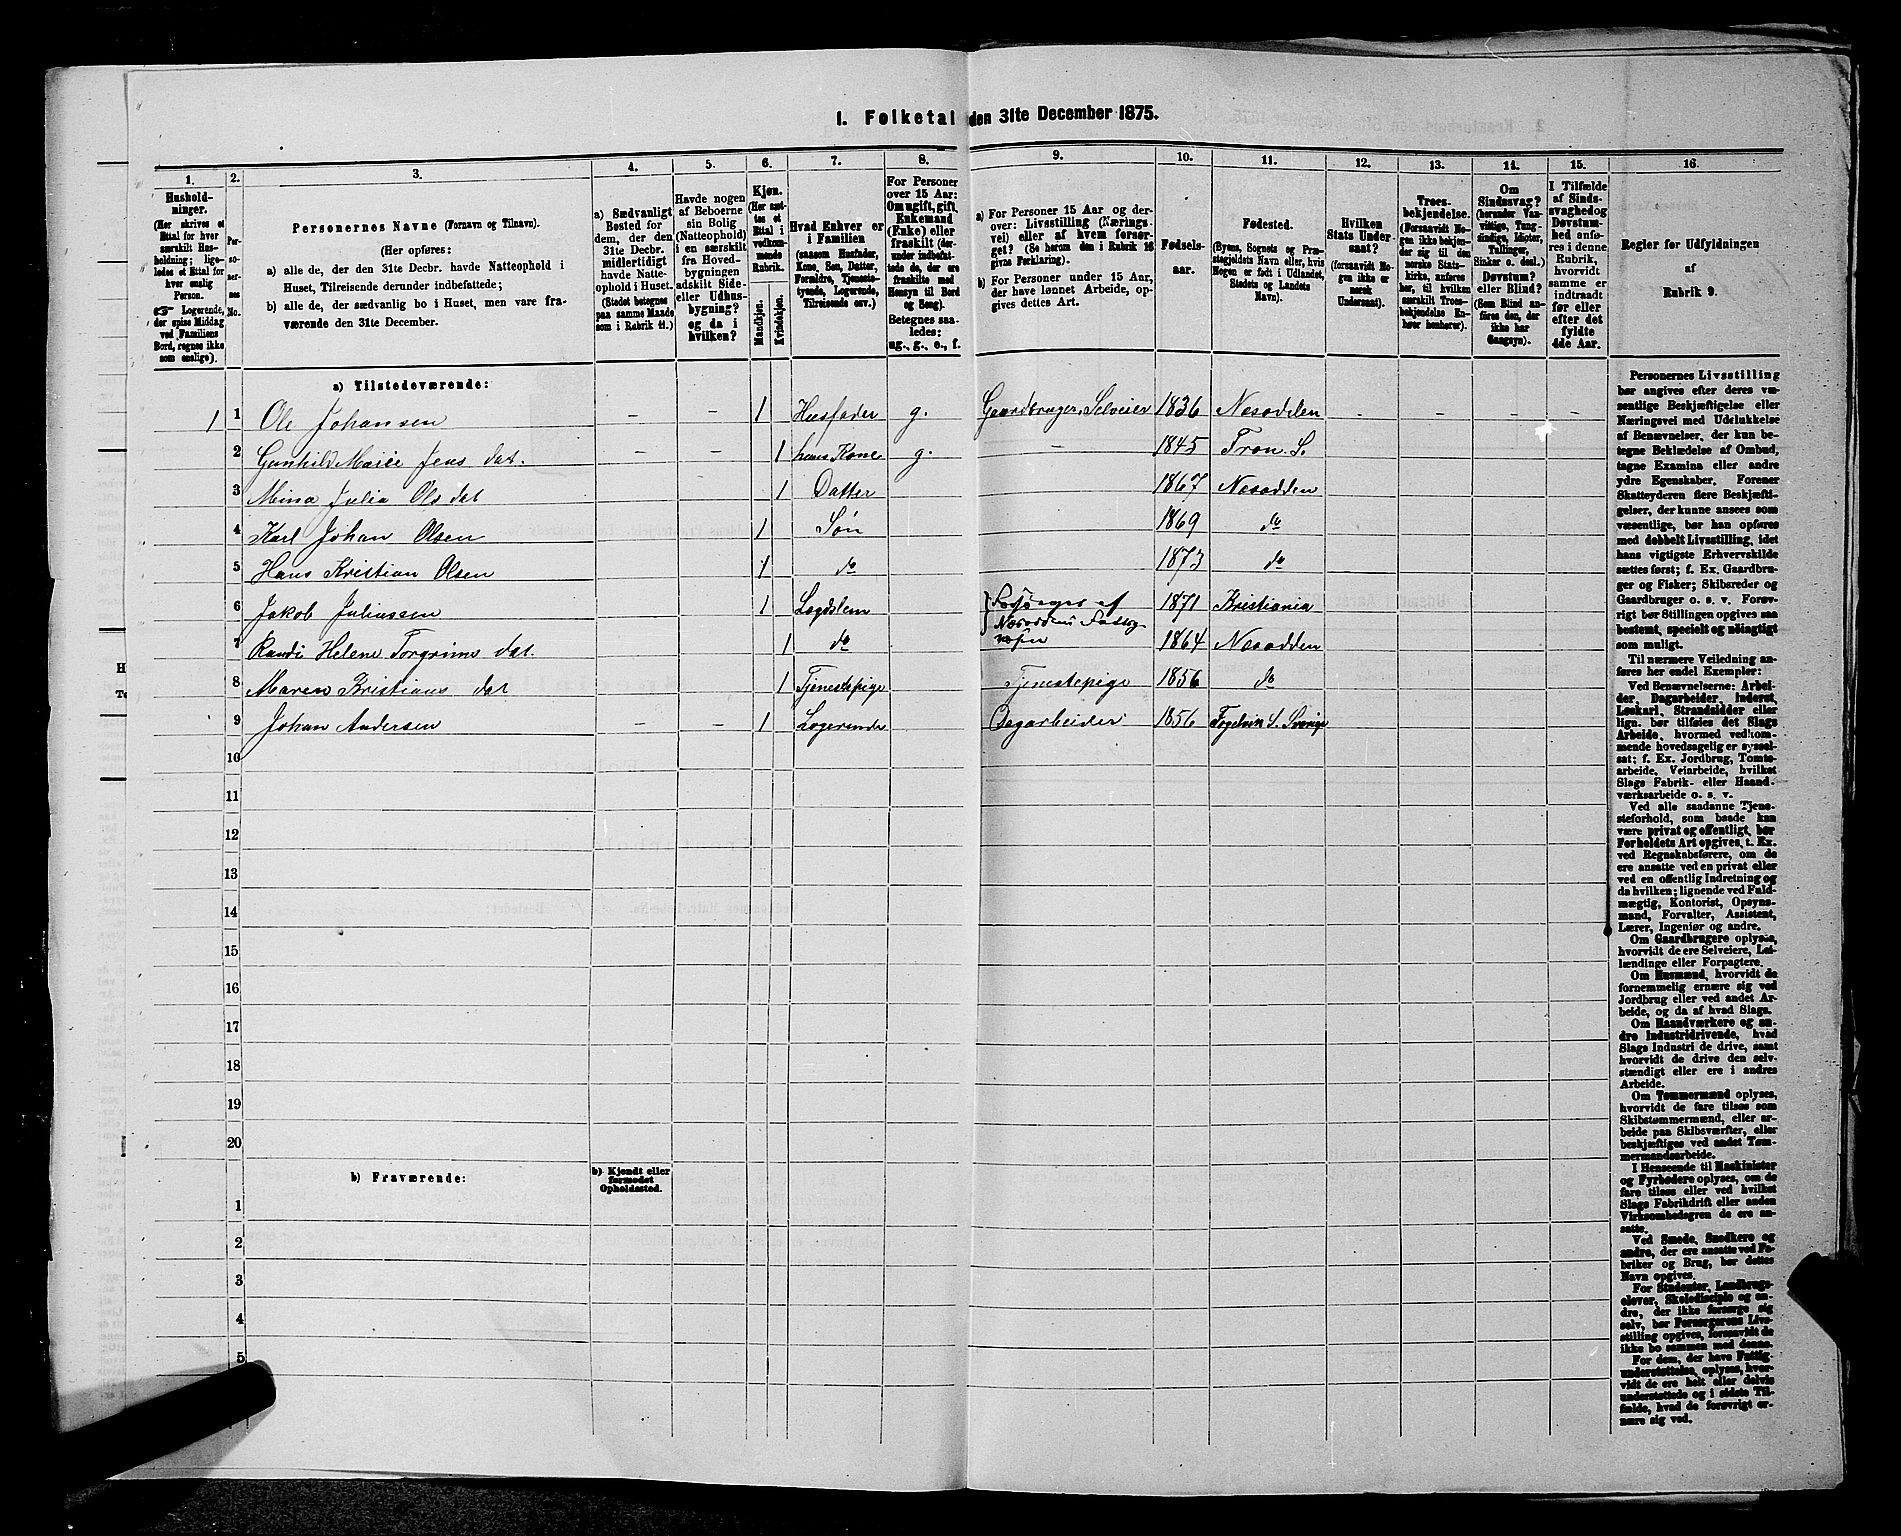 1. Folketal den 31te December 1875.
1. 2. 3. 4. 5. 6. 7. 8. 9. 10. 11. 12. 13. 14. 15. 16.
Hushold-
ninger.
(Her skrives et
Ettal for hver
særskilt Hus-
holdning; lige-
ledes et Ettal for
hver enslig
Person.
☞ Logerende,
der spise Middag
ved Familiens
Bord, regnes ikke
som enslige).
Per-
so-
ner-
nes
No.
Personernes Navne (Fornavn og Tilnavn).
(Her opføres:
a) alle de, der den 31te Decbr. havde Natteophold i
Huset, Tilreisende derunder indbefattede;
b) alle de, der sædvanlig bo i Huset, men vare fra-
værende den 31te December.
a) Sædvanligt
Bosted for
dem, der den
31te Decbr.
midlertidigt
havde Natte-
ophold i Huset.
(Stedet betegnes
paa samme Maade
som i Rubrik 11.)
Havde nogen
af Beboerne
sin Bolig
(Natteophold)
i en særskilt
fra Hoved-
bygningen
adskilt Side-
eller Udhus-
bygning?
og da i
hvilken?
Kjøn.
(Her sæt-
tes et
Ettal i
vedkom-
mende
Rubrik.
Mandkjøn.
Kvindekjøn.
Hvad Enhver er
i Familien
(saasom Husfader,
Kone, Søn, Datter,
Forældre, Tjeneste-
tyende, Logerende,
Tilreisende osv.)
For Personer
over 15 Aar:
Om ugift, gift,
Enkemand
(Enke) eller
fraskilt (der-
under indbefat-
tede de, der ere
fraskilte med
Hensyn til Bord
og Seng).
Betegnes saa-
ledes:
ug., g., e., f.
a) For Personer 15 Aar og der-
over: Livsstilling (Nærings-
vei) eller af hvem forsør-
get? (Se herom den i Rubrik 16
givne Forklaring).
b) For Personer under 15 Aar,
der have lønnet Arbeide, op-
gives dettes Art.
Fødsels-
aar.
Fødested.
(Byens, Sognets og Præ-
stegjeldets Navn eller, hvis
Nogen er født i Udlandet,
Stedets og Landets
Navn).
Hvilken
Stats Under-
saat?
(forsaavidt No-
gen ikke er
norsk
Undersaat).
Troes-
bekjendelse.
(Forsaavidt No-
gen ikke bekjen-
der sig til den
norske Stats-
kirke, anføres
her, til hvilken
særskilt Troes-
bekjendelse En-
hver henhører).
Om
Sindssvag?
(herunder Van-
vittige, Tung-
sindige, Idioter,
Tullinger,
Sinker o. desl.)
Døvstum?
eller Blind?
(Som Blind an-
føres den, der
ikke har
Gangsyn).
I Tilfælde
af Sinds-
svaghed og
Døvstum-
hed anfø-
res i denne
Rubrik,
hvorvidt
samme er
indtraadt
før eller
efter det
fyldte
4de Aar.
Regler for Udfyldningen
af
Rubrik 9.
a) Tilstedeværende:
1 1 Ole Johansen – – 1 Husfader g. Gaardbruger, Selveier 1836 Nesodden - - - -
2 Gunhild Marie Jens dat. – – 1 hans Kone g. – 1845 Tron. S.
3 Mina Julia Ols dat 1 Datter 1867 Nesodden
4 Karl Johan Olsen 1 Søn 1869 do
5 Hans Kristian Olsen 1 do 1873 do
6 Jakob Juliussen 1 Lægdslem Forsørges af 1871 Kristiania
Næsoddens Fattig-
væsen
7 Randi Helene Torgrims dat. 1 do 1864 Nesodden
8 Maren Kristians dat 1 Tjenestepige Tjenestepige 1856 do
9 Johan Andersen – – 1 Logerende Dagarbeider 1856
10
11
12
13
14
15
16
17
18
19
20
b) Fraværende:
b) Kjendt eller
formodet
Opholdssted.
1
2
3
4
5
Personernes Livsstilling
bør angives efter deres væ-
sentlige Beskjæftigelse eller
Næringsvei med Udelukkelse
af Benævnelser, der kun be-
tegne Beklædelse af Ombud,
tagne Examina eller andre
ydre Egenskaber. Forener
Skatteyderen flere Beskjæfti-
gelser, der kunne ansees som
væsentlige, bør han opføres
med dobbelt Livsstilling, idet
hans vigtigste Erhvervskilde
sættes først; f. Ex. Gaardbru-
ger og Fisker; Skibsreder og
Gaardbruger o. s. v. Forøv-
rigt bør Stillingen opgives saa
bestemt, specielt og nøiagtigt
som muligt.
Til nærmere Veiledning an-
føres her endel Exempler:
Ved Benævnelserne: Arbei-
der, Dagarbeider, Inderst,
Løskarl, Strandsidder eller
lign. bør tilføies det Slags
Arbeide, hvormed vedkom-
mende hovedsagelig er syssel-
sat; f. Ex. Jordbrug, Tomte-
arbeide, Veiarbeide, hvilket
Slags Fabrik- eller Haand-
værksarbeide o. s. v.
Ved alle saadanne Tjene-
steforhold, som baade kan
være privat og offentligt, bør
Forholdets Art opgives, f. Ex.
ved Regnskabsførere, om de
ere ansatte ved en privat eller
ved en offentlig Indretning og
da hvilken; lignende ved Fuld-
mægtig, Kontorist, Opsyns-
mand, Forvalter, Assistent,
Lærer, Ingeniør og andre.
Om Gaardbrugere oplyses,
hvorvidt de ere Selveiere, Lei-
lændinge eller Forpagtere.
Om Husmænd, hvorvidt de
fornemmelig ernære sig ved
Jordbrug eller ved andet Ar-
beide, og da af hvad Slags.
Om Haandværkere og an-
dre Industridrivende, hvad
Slags Industri de drive, samt
hvorvidt de drive den selv-
stændigt eller ere i andres
Arbeide.
Om Tømmermænd oplyses,
hvorvidt de fare tilsøs som
Skibstømmermænd, eller ar-
beide paa Skibsværfter, eller
beskjæftiges ved andet Tøm-
mermandsarbeide.
I Henseende til Maskinister
og Fyrbødere oplyses, om de
fare tilsøs eller ved hvilket
Slags Fabrikdrift eller anden
Virksomhedsgren de ere an-
satte.
Ved Smede, Snedkere og
andre, der ere ansatte ved Fa-
briker og Brug, bør dettes
Navn opgives.
For Studenter, Landbrugs-
elever, Skoledisciple og an-
dre, der ikke forsørge sig
selv, bør Forsørgerens Livs-
stilling opgives, forsaavidt de
ikke bo sammen med denne.
For dem, der have Fattig-
understøttelse, oplyses, hvor-
vidt de ere helt eller delvis
understøttede og i sidste Til-
fælde, hvad de forøvrigt er-
nære sig ved.